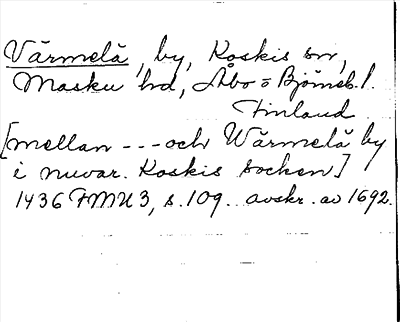 Värmelä, by, Koskis sn,
Masku hd, Åbo o Björneb. l.
Finland
[mellan --- och Wärmelä by
i nuvar. Koskis socken]
1436 FMU 3, s. 109. avskr. av 1692.